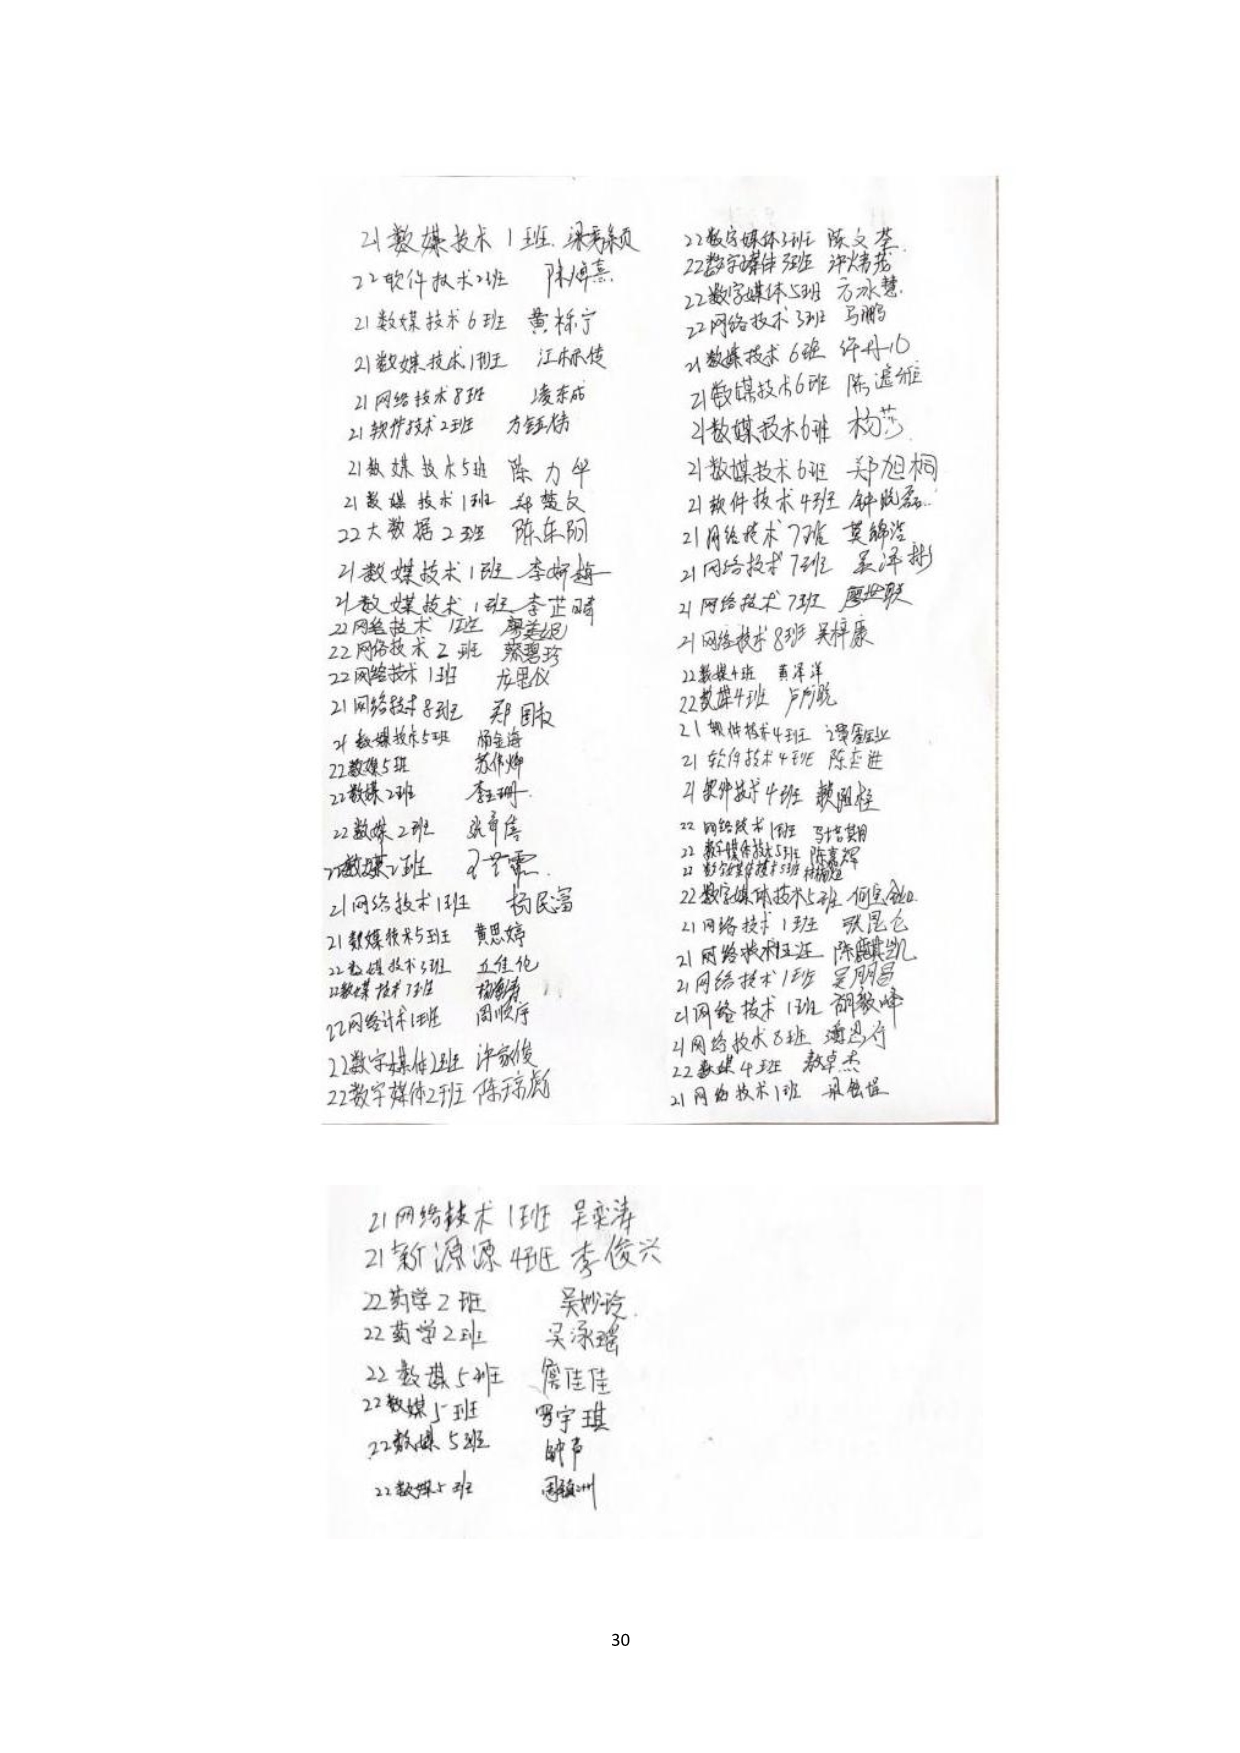 21数媒技术1班 梁秀颖
22软件技术2班 陈博熹
21数媒技术6班 黄栎宁
21数媒技术1班 江
21网络技术8班 凌东成
21软件技术2班 方钰倩
21数媒技术5班 陈力华
21数媒技术1班 郑楚文
22大数据2班 陈东阳
21数媒技术1班 李妍
21数媒技术1班 李芷晴
22网络技术1班 廖美妮
22网络技术2班 蔡碧珍
22网络技术1班 龙思仪
21网络技术8班 郑国权
21数媒技术5班 杨金海
22数媒5班 苏伟
22数媒2班 李玉珊
22数媒2班 张
22数媒2班
21网络技术1班 杨民富
21数媒技术5班 黄思婷
22数媒技术3班 丘佳伦
22数媒技术3班 杨
22网络计术1班 周顺序
22数字媒体2班 许家俊
22数字媒体2班 陈琼彪
22数字媒体3班 陈文
22数字媒体3班 许炜
22数字媒体5班 方冰慧
22网络技术3班 马鹏
21数媒技术6班 许丹
21数媒技术6班 陈
21数媒技术6班 杨莎
21数媒技术6班 郑旭桐
21软件技术4班 钟晓磊
21网络技术7班 莫锦浩
21网络技术7班 吴泽彬
21网络技术7班 廖世联
21网络技术8班 吴梓康
22数媒4班 黄泽洋
22数媒4班 卢
21软件技术4班 谭
21软件技术4班 陈志进
21软件技术4班 赖
22网络技术1班 马
22数字媒体技术5班 陈嘉辉
22数字媒体技术5班 林
22数字媒体技术5班 何
21网络技术1班 张昆仑
21网络技术1班 陈麒凯
21网络技术1班 吴朋昌
21网络技术1班 胡毅峰
21网络技术8班 潘
22数媒4班 敖卓杰
21网络技术1班 梁
21网络技术1班 吴奕涛
21新源源4班 李俊兴
22药学2班 吴妙玲
22药学2班 吴泳瑶
22数媒5班 詹佳佳
22数媒5班 罗宇琪
22数媒5班 钟声
22数媒5班 周镇洲
30